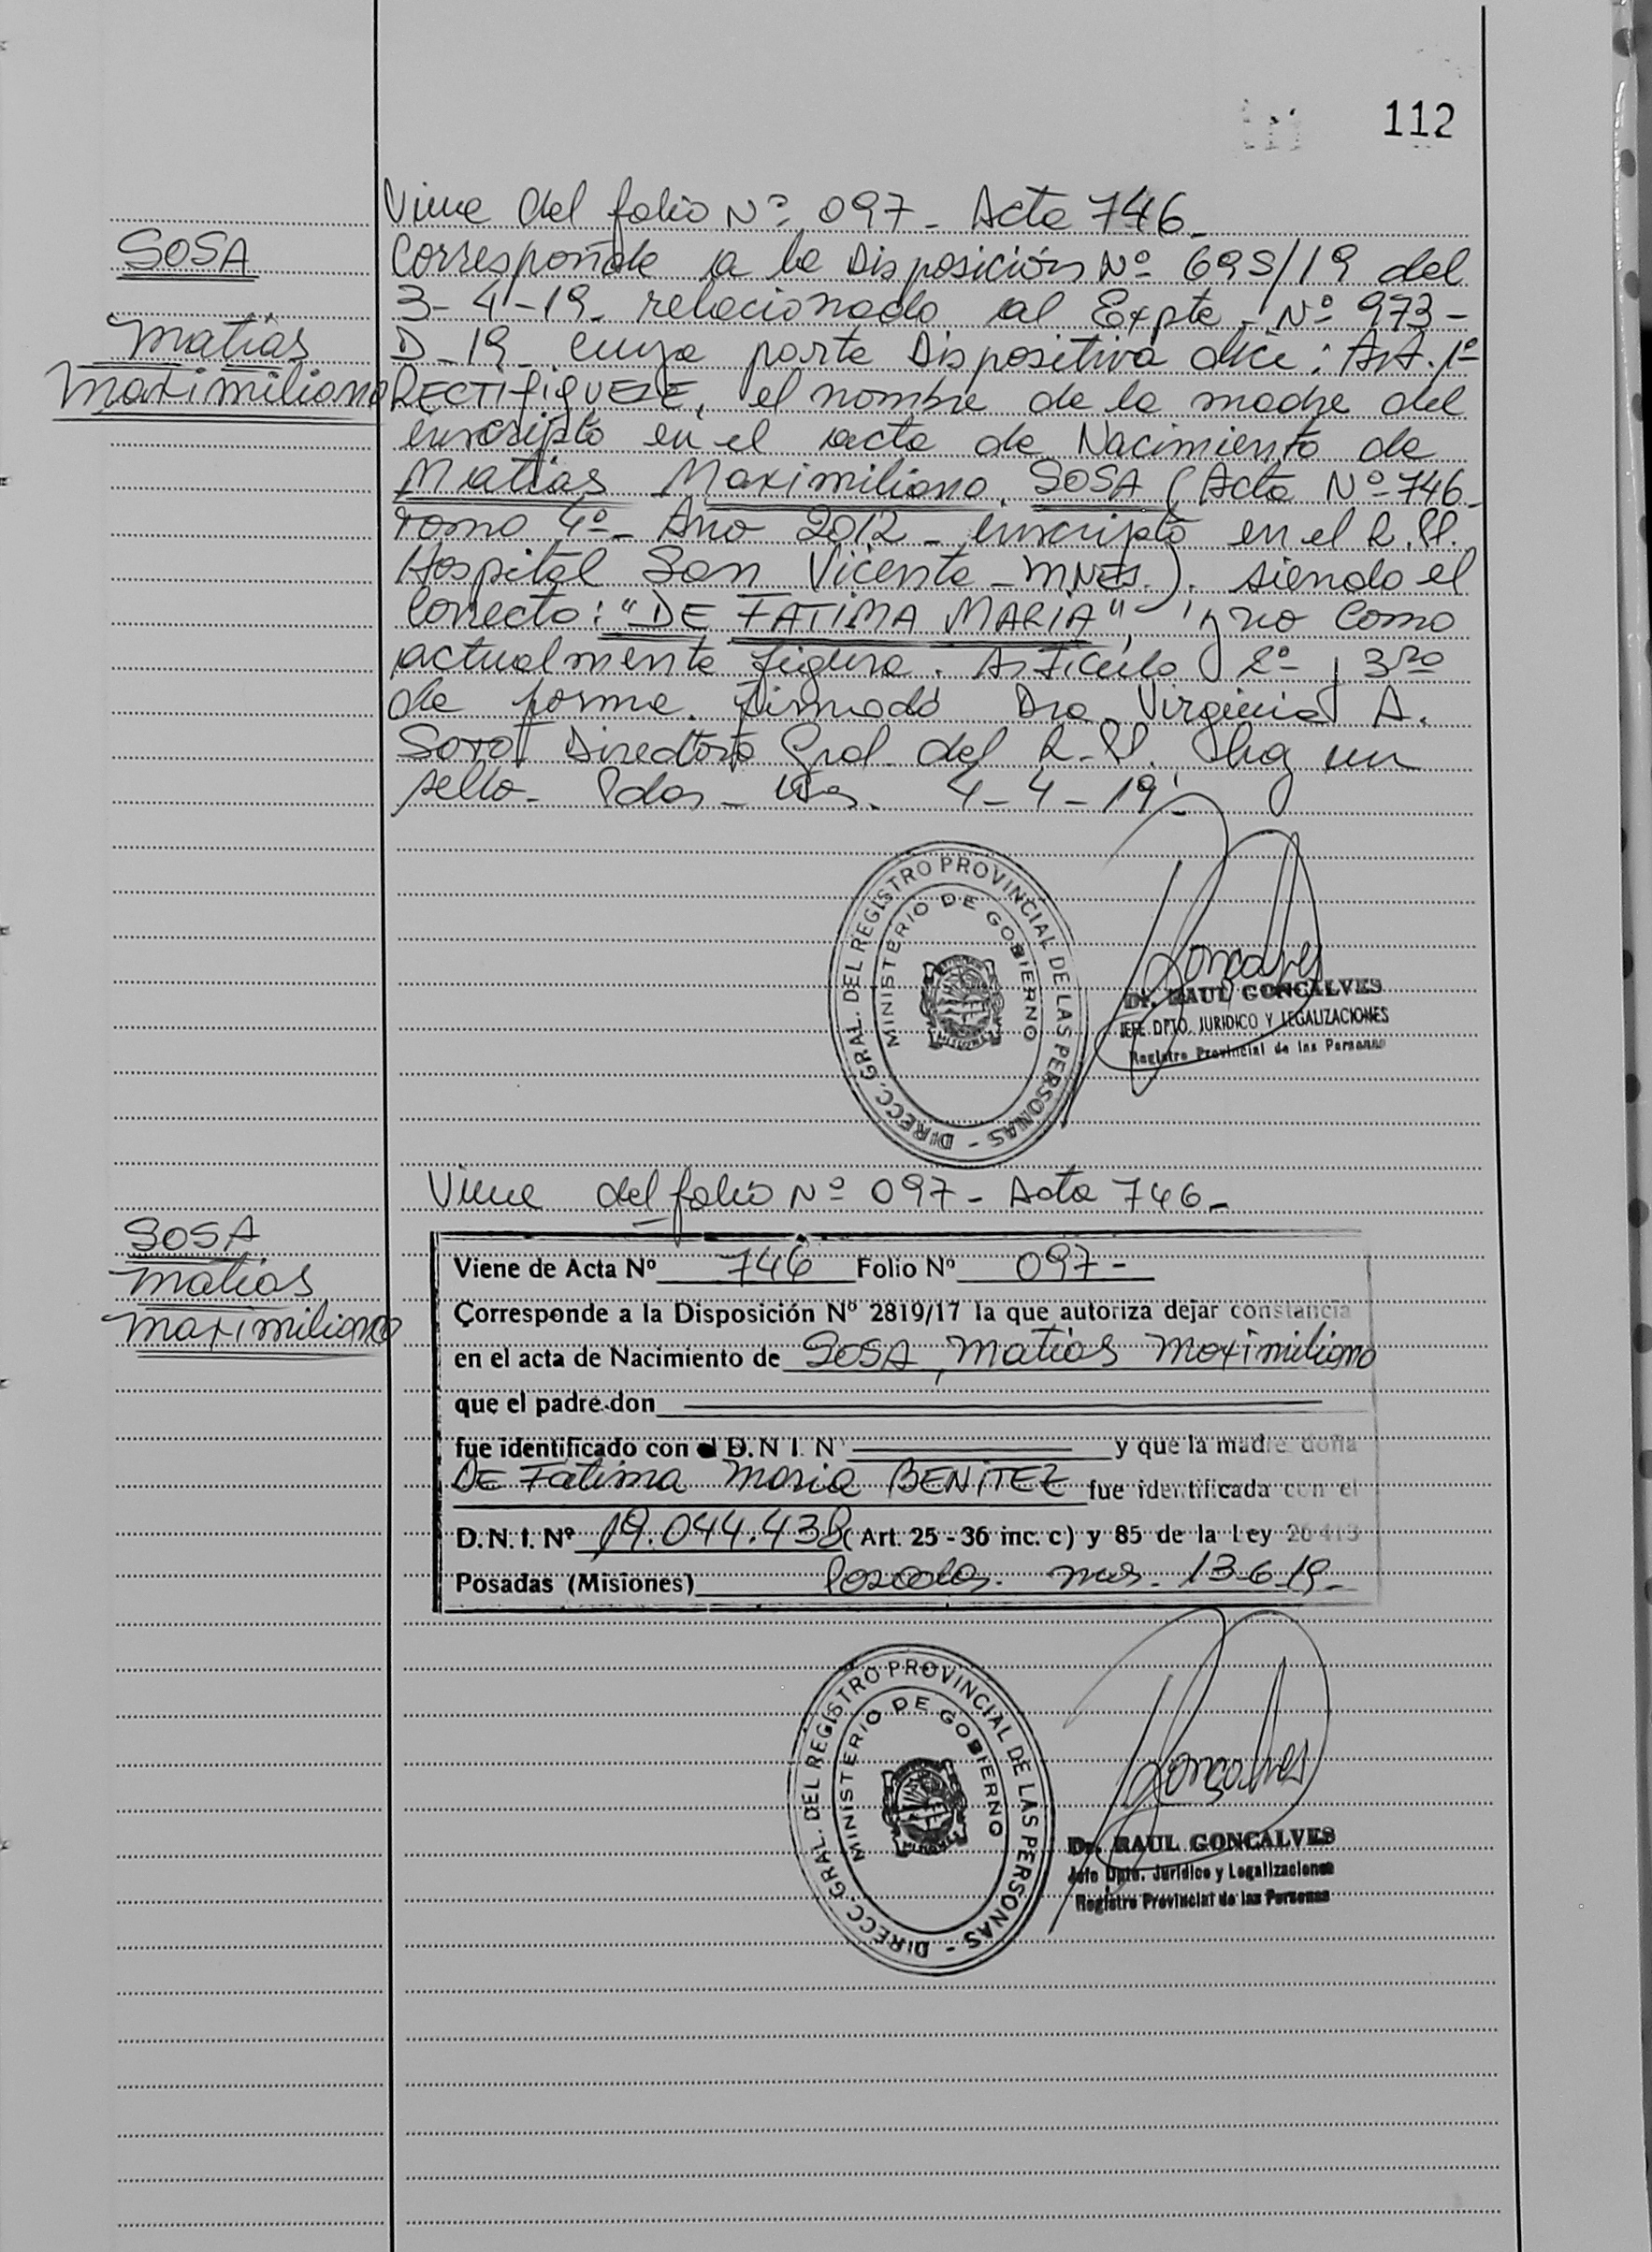 112
Viene del folio Nº 097 - Acta 746.-
SOSA
Matias
Maximiliano
Corresponde a la Disposición Nº 695/19 del
3-4-19 - relacionado al Expte. Nº 973-
D-19 - cuya parte Dispositiva dice: Art. 1º
RECTIFIQUESE, el nombre de la madre del
inscripto en el acta de Nacimiento de
Matias Maximiliano SOSA (Acta Nº 746
Tomo 4º - Año 2012 - inscripto en el R.P.
Hospital San Vicente - MNES.). siendo el
correcto: "DE FATIMA MARIA", y no como
actualmente figura. Artículo 2º y 3ro
de forma. Firmado Dra. Virginia A.
Soto Directora Gral. del R.P. hay un
sello - Pdas - Mes. 4-4-19.-
DIRECC. GRAL. DEL REGISTRO PROVINCIAL DE LAS PERSONAS -
MINISTERIO DE GOBIERNO
MISIONES
Goncalves
Dr. RAUL GONCALVES
JEFE DPTO. JURIDICO Y LEGALIZACIONES
Registro Provincial de las Personas
Viene del folio Nº 097 - Acta 746.-
SOSA
Matias
Maximiliano
Viene de Acta Nº 746 Folio Nº 097-
Corresponde a la Disposición Nº 2819/17 la que autoriza dejar constancia
en el acta de Nacimiento de SOSA, Matias Maximiliano
que el padre don
fue identificado con el D.N I. N° y que la madre doña
DE Fátima Maria BENITEZ fue identificada con el
D.N.I. Nº 19.044.438 (Art. 25 - 36 inc. c) y 85 de la Ley 26413
Posadas (Misiones) Posadas. Mnes. 13-6-19-
DIRECC. GRAL. DEL REGISTRO PROVINCIAL DE LAS PERSONAS -
MINISTERIO DE GOBIERNO
MISIONES
Goncalves
Dr. RAUL GONCALVES
Jefe Dpto. Jurídico y Legalizaciones
Registro Provincial de las Personas